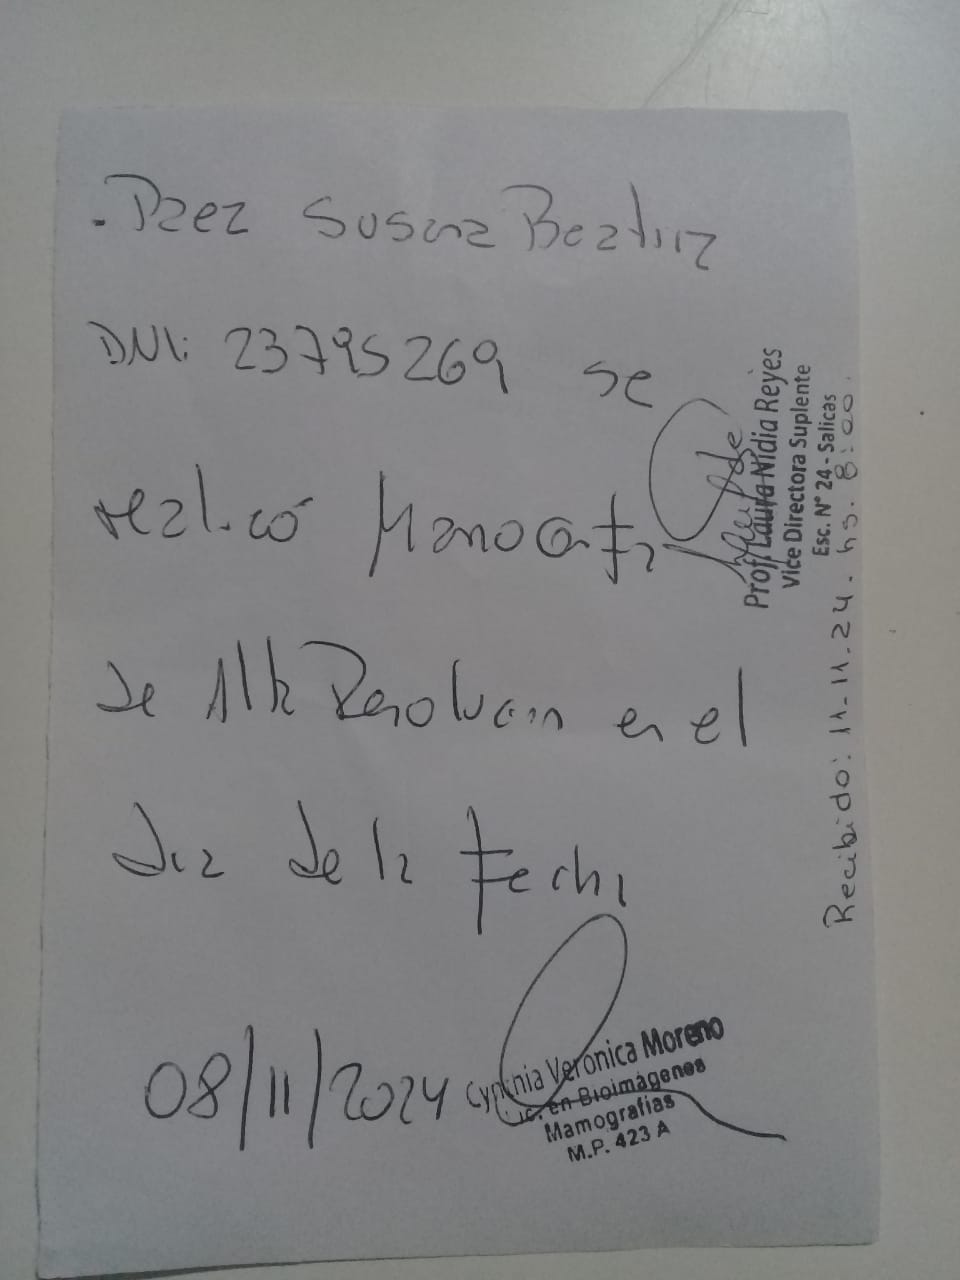 . Paez Susana Beatriz
DNI: 23795269 se
realizó Mamografía
de Alta Resolución en el
día de la fecha
08/11/2024
Cynthia Veronica Moreno
Lic. en Bioimágenes
Mamografias
M.P. 423 A
Prof. Laura Nidia Reyes
Vice Directora Suplente
Esc. N° 24 - Salicas
Recibido: 11-11-24. hs. 8:00.